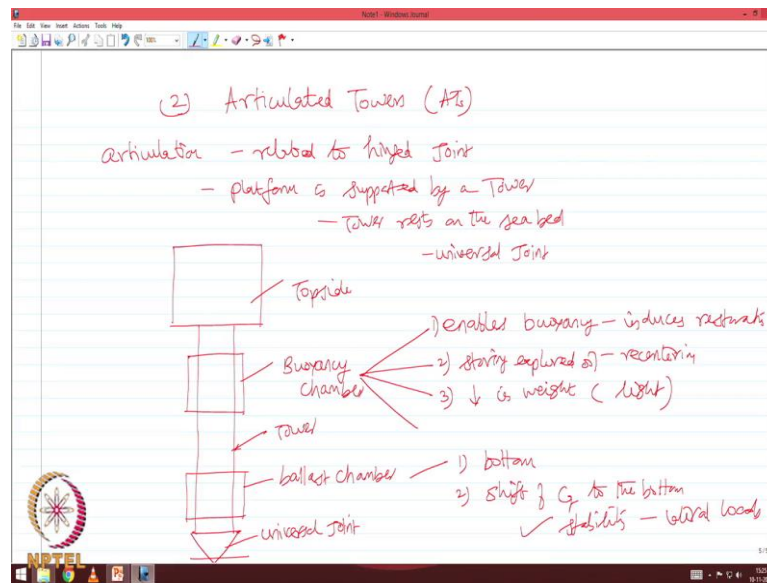 Note1 - Windows Journal
File Edit View Insert Actions Tools Help
(2) Articulated Towers (ATs)
articulation - related to hinged Joint
- platform is supported by a Tower
- Tower rests on the sea bed
- universal Joint
Topside
Buoyancy chamber
1) enables buoyancy - induces restoration
2) storing explored oil - recentering
3) ↓ is weight (light)
Tower
ballast chamber
1) bottom
2) shift of CG to the bottom
✓ stability - lateral loads
universal Joint
NPTEL
5/5
15:25